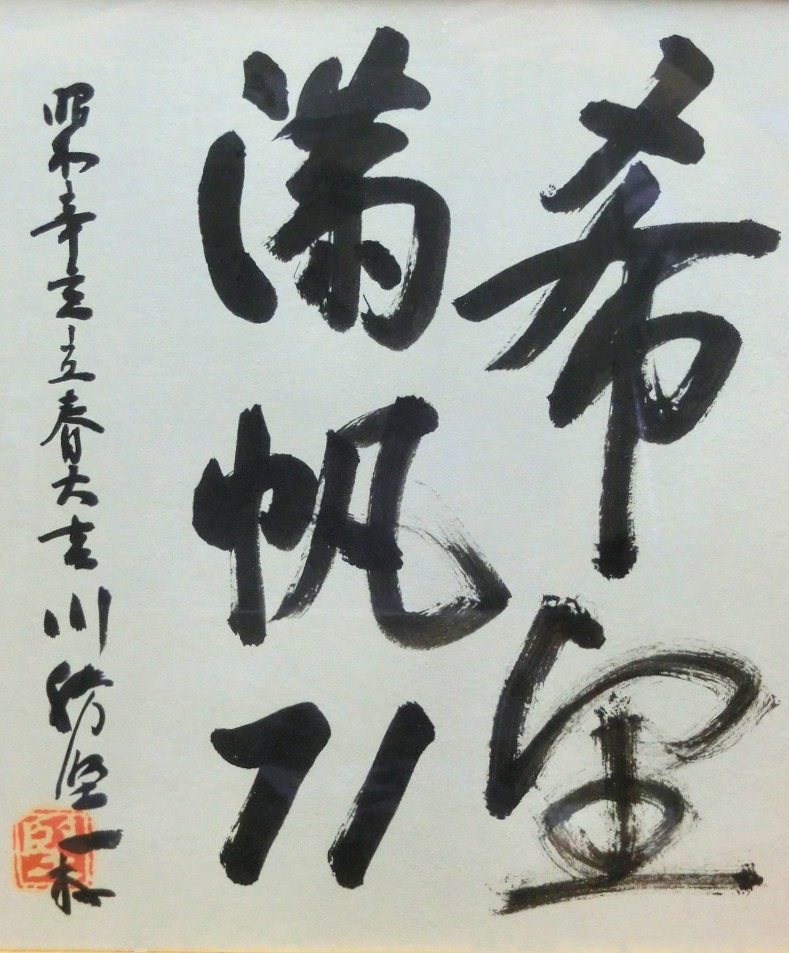 希望
満帆71
昭和辛亥立春大吉川勝堅一